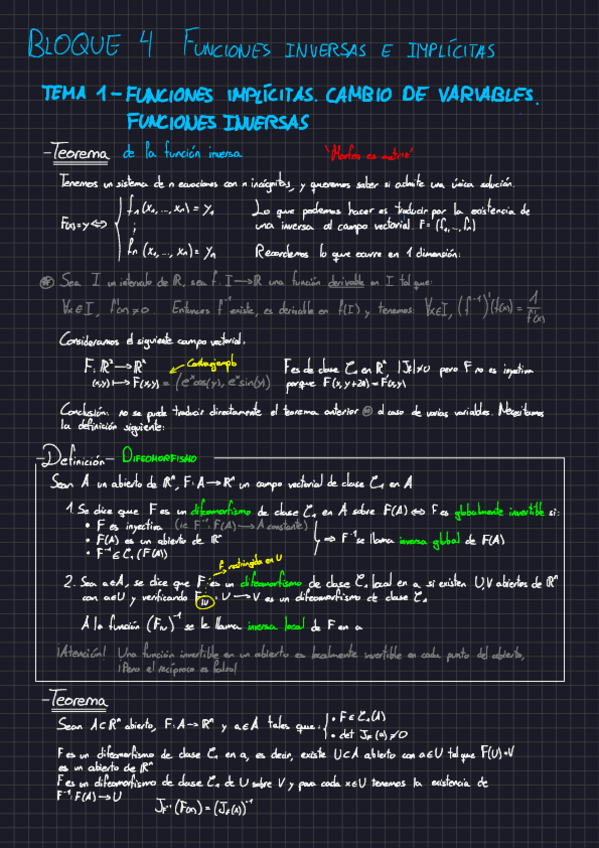 BLOQUE 4 FUNCIONES INVERSAS E IMPLÍCITAS
TEMA 1 - FUNCIONES IMPLÍCITAS. CAMBIO DE VARIABLES.
FUNCIONES INVERSAS
- Teorema de la función inversa
Tenemos un sistema de n ecuaciones con n incógnitas, y queremos saber si admite una única solución.
f₁(x₁,..., xₙ) = y₁ Lo que podemos hacer es traducir por la existencia de
F(x)=y ⇔ ⋮ una inversa al campo vectorial F = (f₁,..., fₙ)
fₙ(x₁,..., xₙ) = yₙ Recordemos lo que ocurre en 1 dimensión:
⊛ Sea I un intervalo de ℝ, sea f: I→ℝ una función derivable en I tal que:
∀x∈I, f'(x)≠0. Entonces f⁻¹ existe, es derivable en f(I) y tenemos: ∀x∈I, (f⁻¹)'(f(x)) = 1/f'(x)
Consideramos el siguiente campo vectorial.
F: ℝ²→ℝ² ← Contraejemplo F es de clase C₁ en ℝ² |J_F|≠0 pero F no es inyectiva
(x,y)↦F(x,y) = (eˣcos(y), eˣsin(y)) porque F(x, y+2π) = F(x,y)
Conclusión: no se puede traducir directamente el teorema anterior ⊛ al caso de varias variables. Necesitamos
la definición siguiente:
- Definición - DIFEOMORFISMO
Sean A un abierto de ℝⁿ, F: A→ℝⁿ un campo vectorial de clase C₁ en A
1. Se dice que F es un difeomorfismo de clase C₁ en A sobre F(A) ⇔ F es globalmente invertible si:
• F es inyectiva (ie F⁻¹: F(A)→A constante)
• F(A) es un abierto de ℝⁿ ⇒ F⁻¹ se llama inversa global de F(A)
• F⁻¹∈C₁(F(A))
F restringida en U
2. Sea a∈A, se dice que F es un difeomorfismo de clase C₁ local en a si existen U,V abiertos de ℝⁿ
con a∈U y verificando F|U: U→V es un difeomorfismo de clase C₁
A la función (F|U)⁻¹ se le llama inversa local de F en a
¡Atención! Una función invertible en un abierto es localmente invertible en cada punto del abierto,
¡Pero el recíproco es falso!
- Teorema
Sean A⊂ℝⁿ abierto, F: A→ℝⁿ y a∈A tales que: • F∈C₁(A)
• det J_F(a)≠0
F es un difeomorfismo de clase C₁ en a, es decir, existe U⊂A abierto con a∈U tal que F(U)=V
es un abierto de ℝⁿ
F es un difeomorfismo de clase C₁ de U sobre V y para cada x∈U tenemos la existencia de
F⁻¹: F(A)→U
J_F⁻¹(F(x)) = (J_F(x))⁻¹